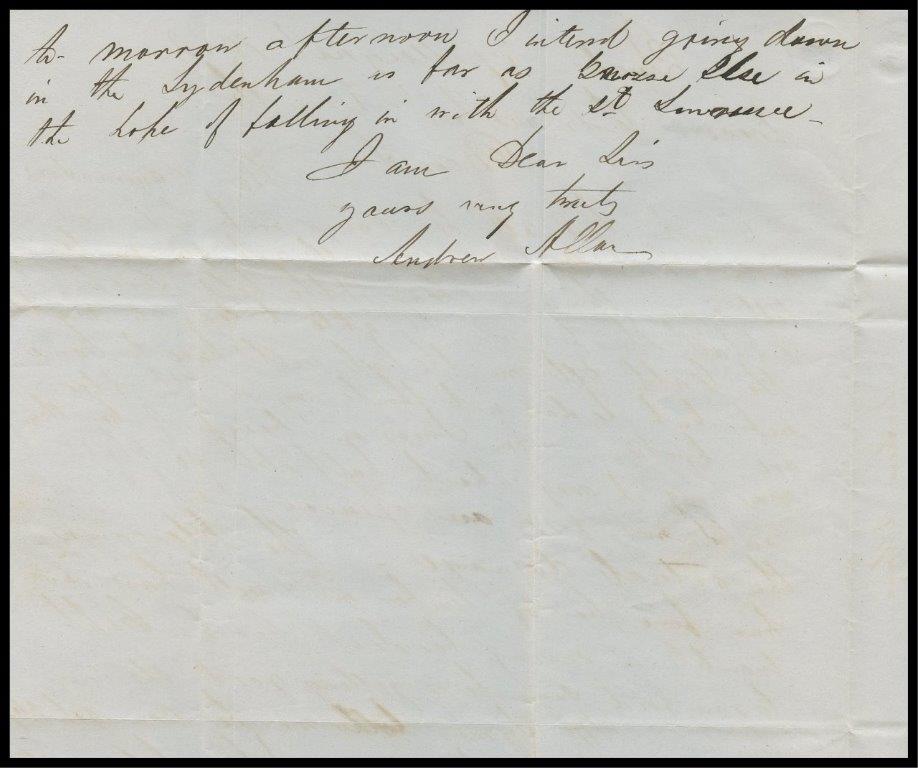 to-morrow afternoon I intend going down
in the Sydenham as far as Grosse Isle in
the hope of falling in with the St Lawrence_
I am Dear Sirs
yours very truly
Andrew Allan